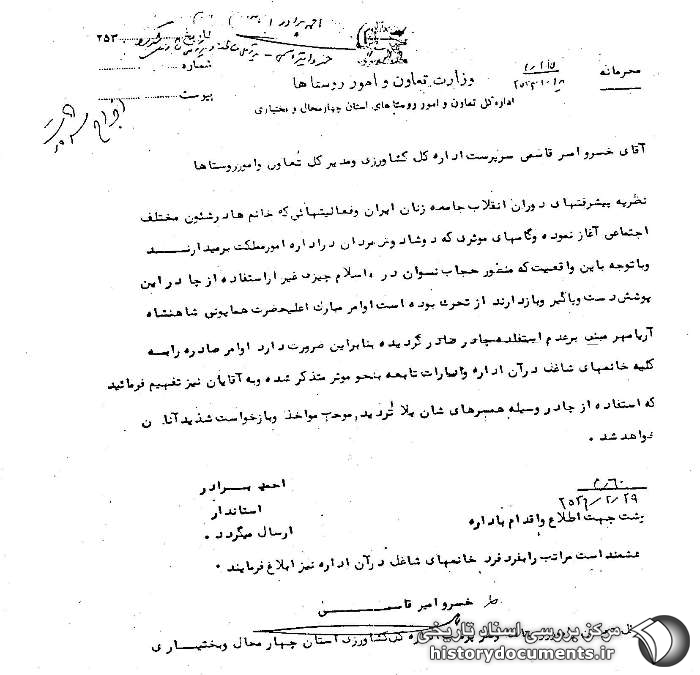 تاریخ
شماره
پیوست
محرمانه
وزارت تعاون و امور روستاها
اداره کل تعاون و امور روستاهای استان چهارمحال و بختیاری
آقای خسرو امیر قاسمی سرپرست اداره کل کشاورزی و مدیر کل تعاون وامورروستاها
نظربه پیشرفتهای دوران انقلاب جامعه زنان ایران وفعالیتهائی که خانم هادرشئون مختلف
اجتماعی آغاز نموده وگامهای موثری که دوشادوش مردان دراداره امورمملکت برمیدارند
وباتوجه باین واقعیت که منظور حجاب نسوان در اسلام چیزی غیر ازاستفاده از چادر این
پوشش دست وپاگیر وبازدارنده از تحرک بوده است اوامر مبارک اعلیحضرت همایونی شاهنشاه
آریامهر مبنی برعدم استفاده چادر صادر گردیده بنابراین ضرورت دارد اوامر صادره رابه
کلیه خانمهای شاغل درآن اداره وادارات تابعه بنحو موثر متذکر شده وبه آقایان نیز تفهیم فرمائید
که استفاده از چادر وسیله همسرهای شان موجب مواخذه وبازخواست شدید آنان
خواهد شد .
احمد برادر
استاندار
۲۵۳۶/۲/۲۹
رشت جهت اطلاع واقدام باداره ارسال میگردد .
متمنداست مراتب رابفرد فرد خانمهای شاغل درآن اداره نیز ابلاغ فرمایند .
خسرو امیر قاسمی
کل کشاورزی استان چهار محال وبختیاری
مرکز بررسی اسناد تاریخی
historydocuments.ir